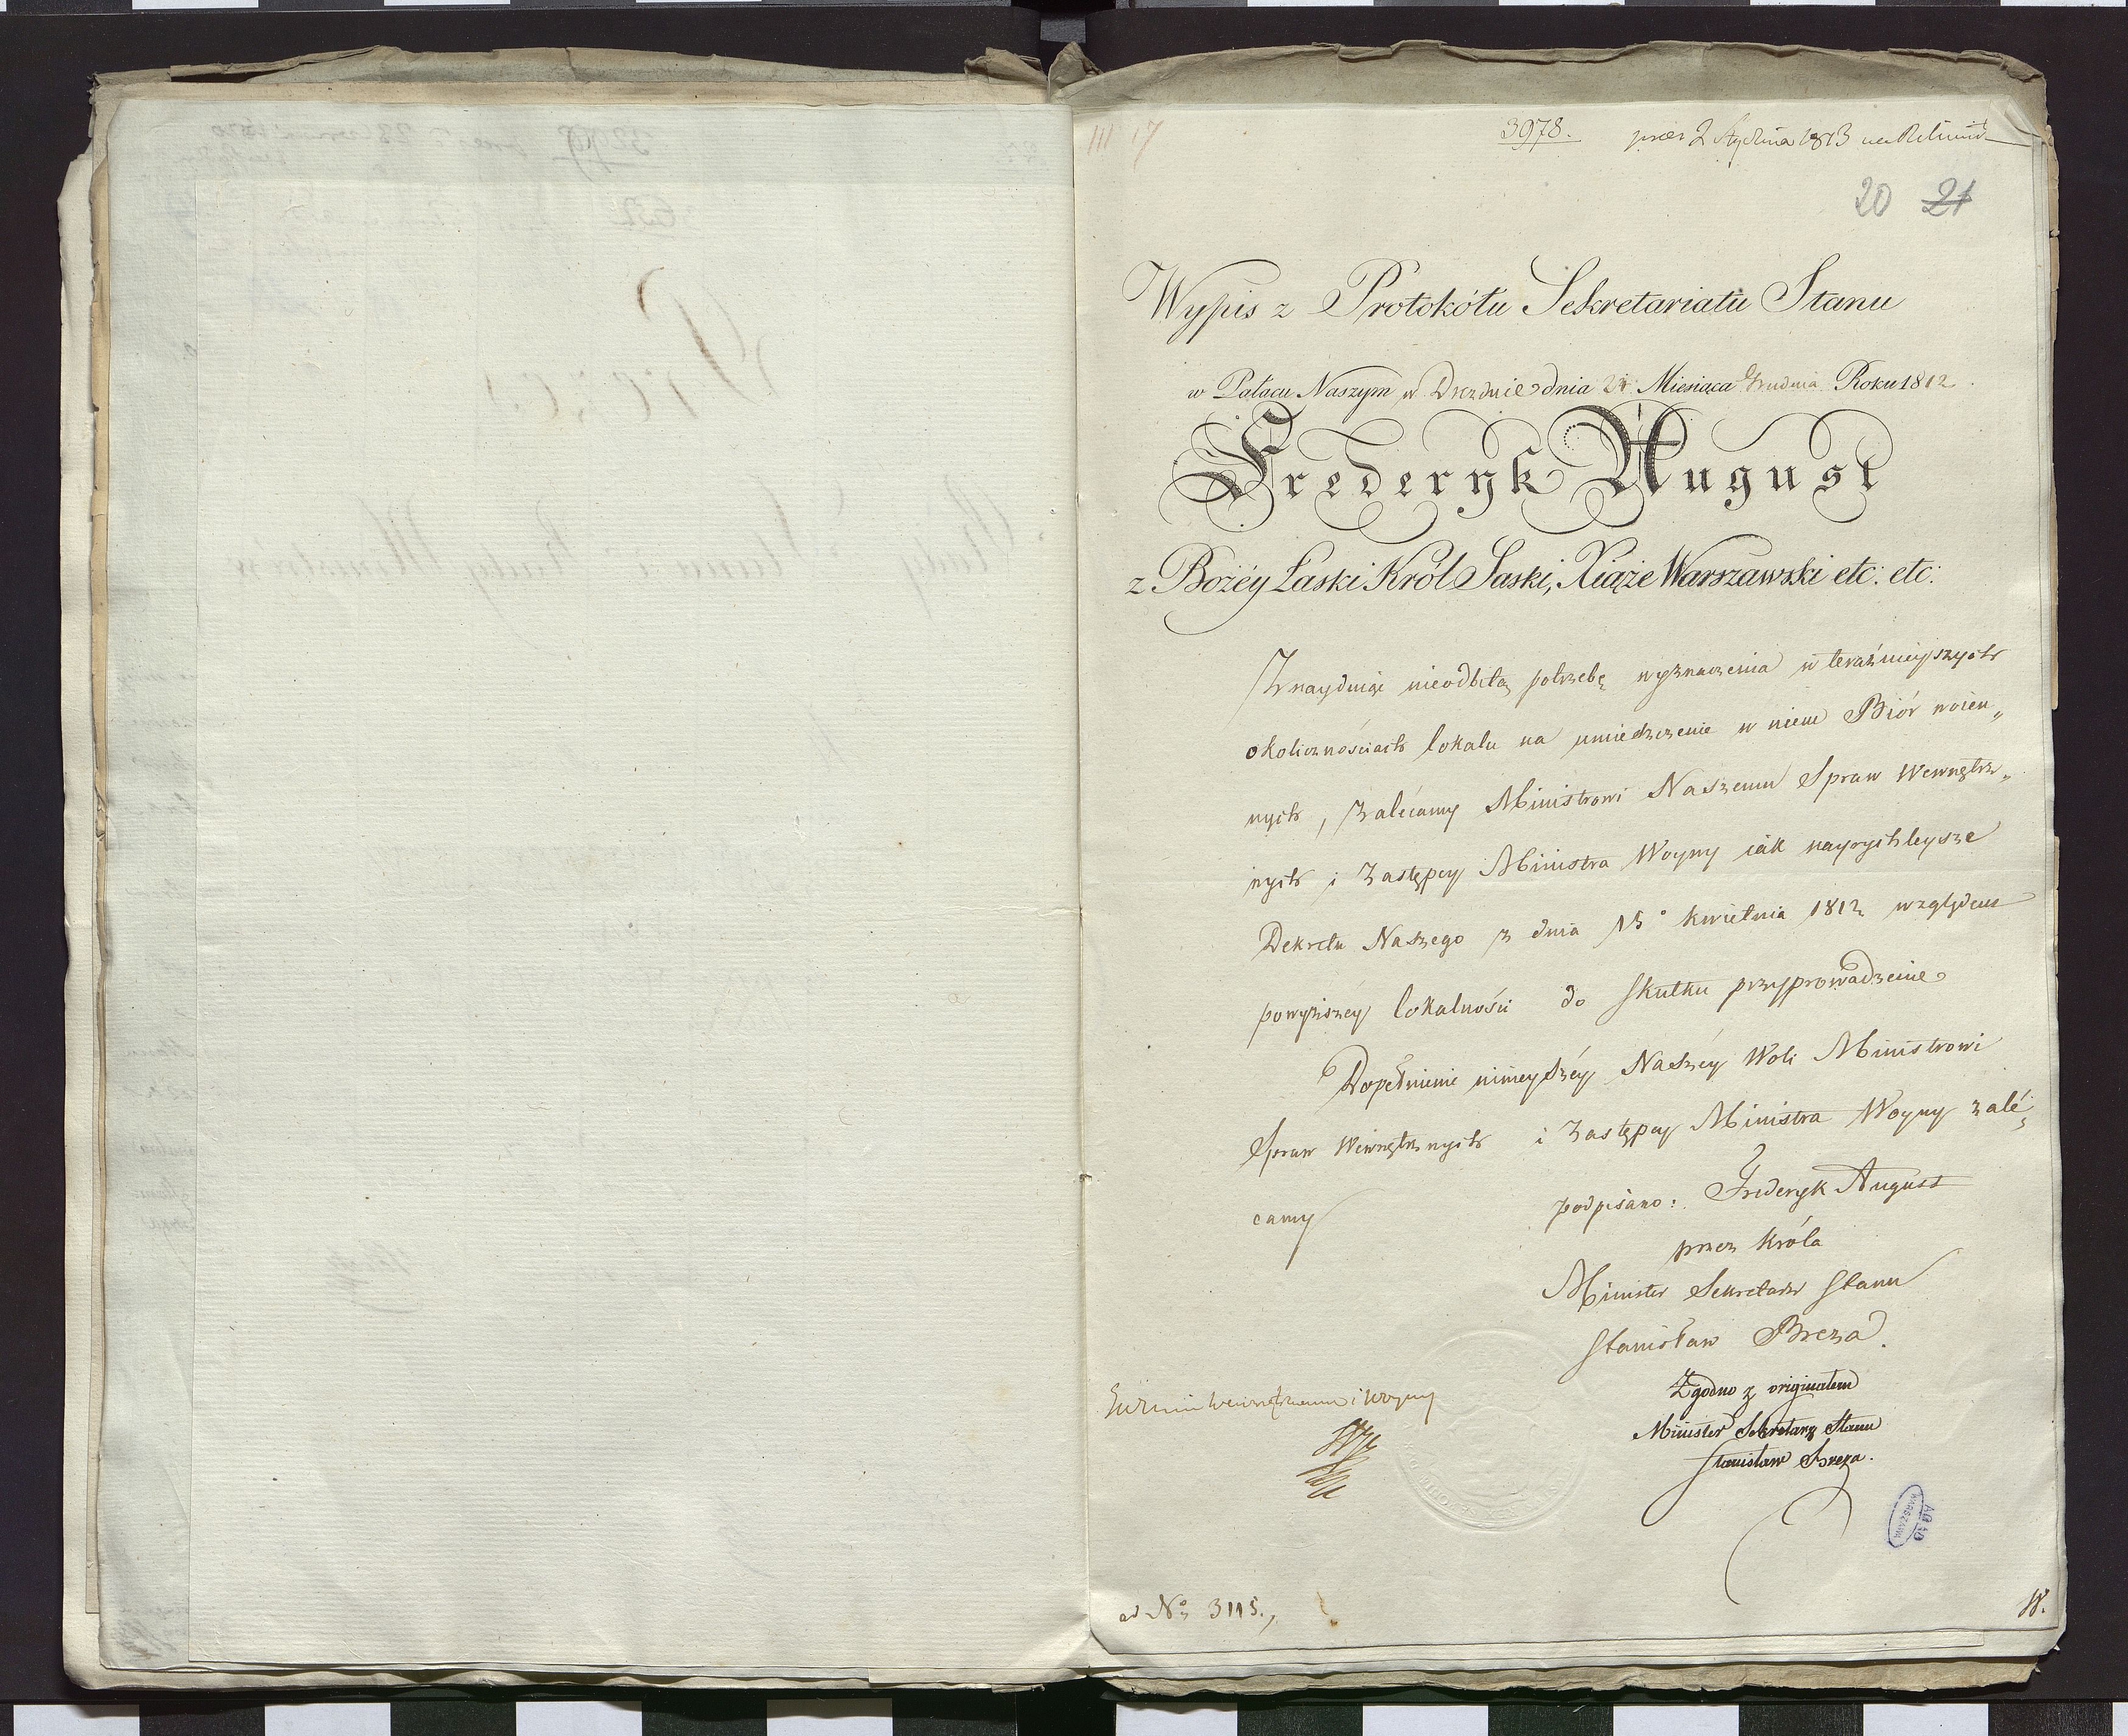 III 17
3978.
prer 2 Stycznia 1813
20 21
Wypis z Protokółu Sekretariatu Stanu
w Pałacu Naszym w Dreznie dnia 21 Miesiąca Grudnia Roku 1812
Frederyk August
z Bożéy Łaski Król Saski, Xiąże Warszawski etc: etc:
Znayduiąc nieodbitą potrzebę wyznaczenia w teraźnieyszych
okolicznościach lokalu na umieszczenie w niem Biór woien„
nych, zalécamy Ministrowi Naszemu Spraw Wewnętrz„
nych i Zastępcy Ministra Woyny iak nayrychleysze
Dekretu Naszego z dnia 15° kwietnia 1812 względem
powyższéy lokalności do skutku przyprowadzenie
Dopełnienie ninieyszéy Naszéy Woli Ministrowi
Spraw Wewnętrznych i Zastępcy Ministra Woyny zalé„
camy
podpisano: Frideryk August
przez Króla
Minister Sekretarz Stanu
Stanisław Breza.
Zgodno z originałem
Minister Sekretarz Stanu
Stanisław Breza.
i Woyny
AGAD
WARSZAWA
ad No 3115.,
W.